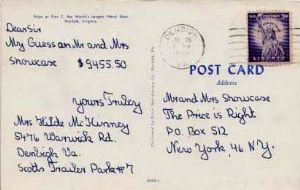 Ships at Pier 7, the World's Largest Naval Base
Norfolk, Virginia
Dear Sir
My Guess on Mr and Mrs
Showcase $9455.50
Yours Truley
Mrs Wilde McKinney
5476 Warwick Rd.
Denbigh Va.
Scotts Trailer Park #7
DENBIGH
LIBERTY
POST CARD
Address
Mr and Mrs Showcase
The Price is Right
P.O. Box 512
New York, 46 N.Y.